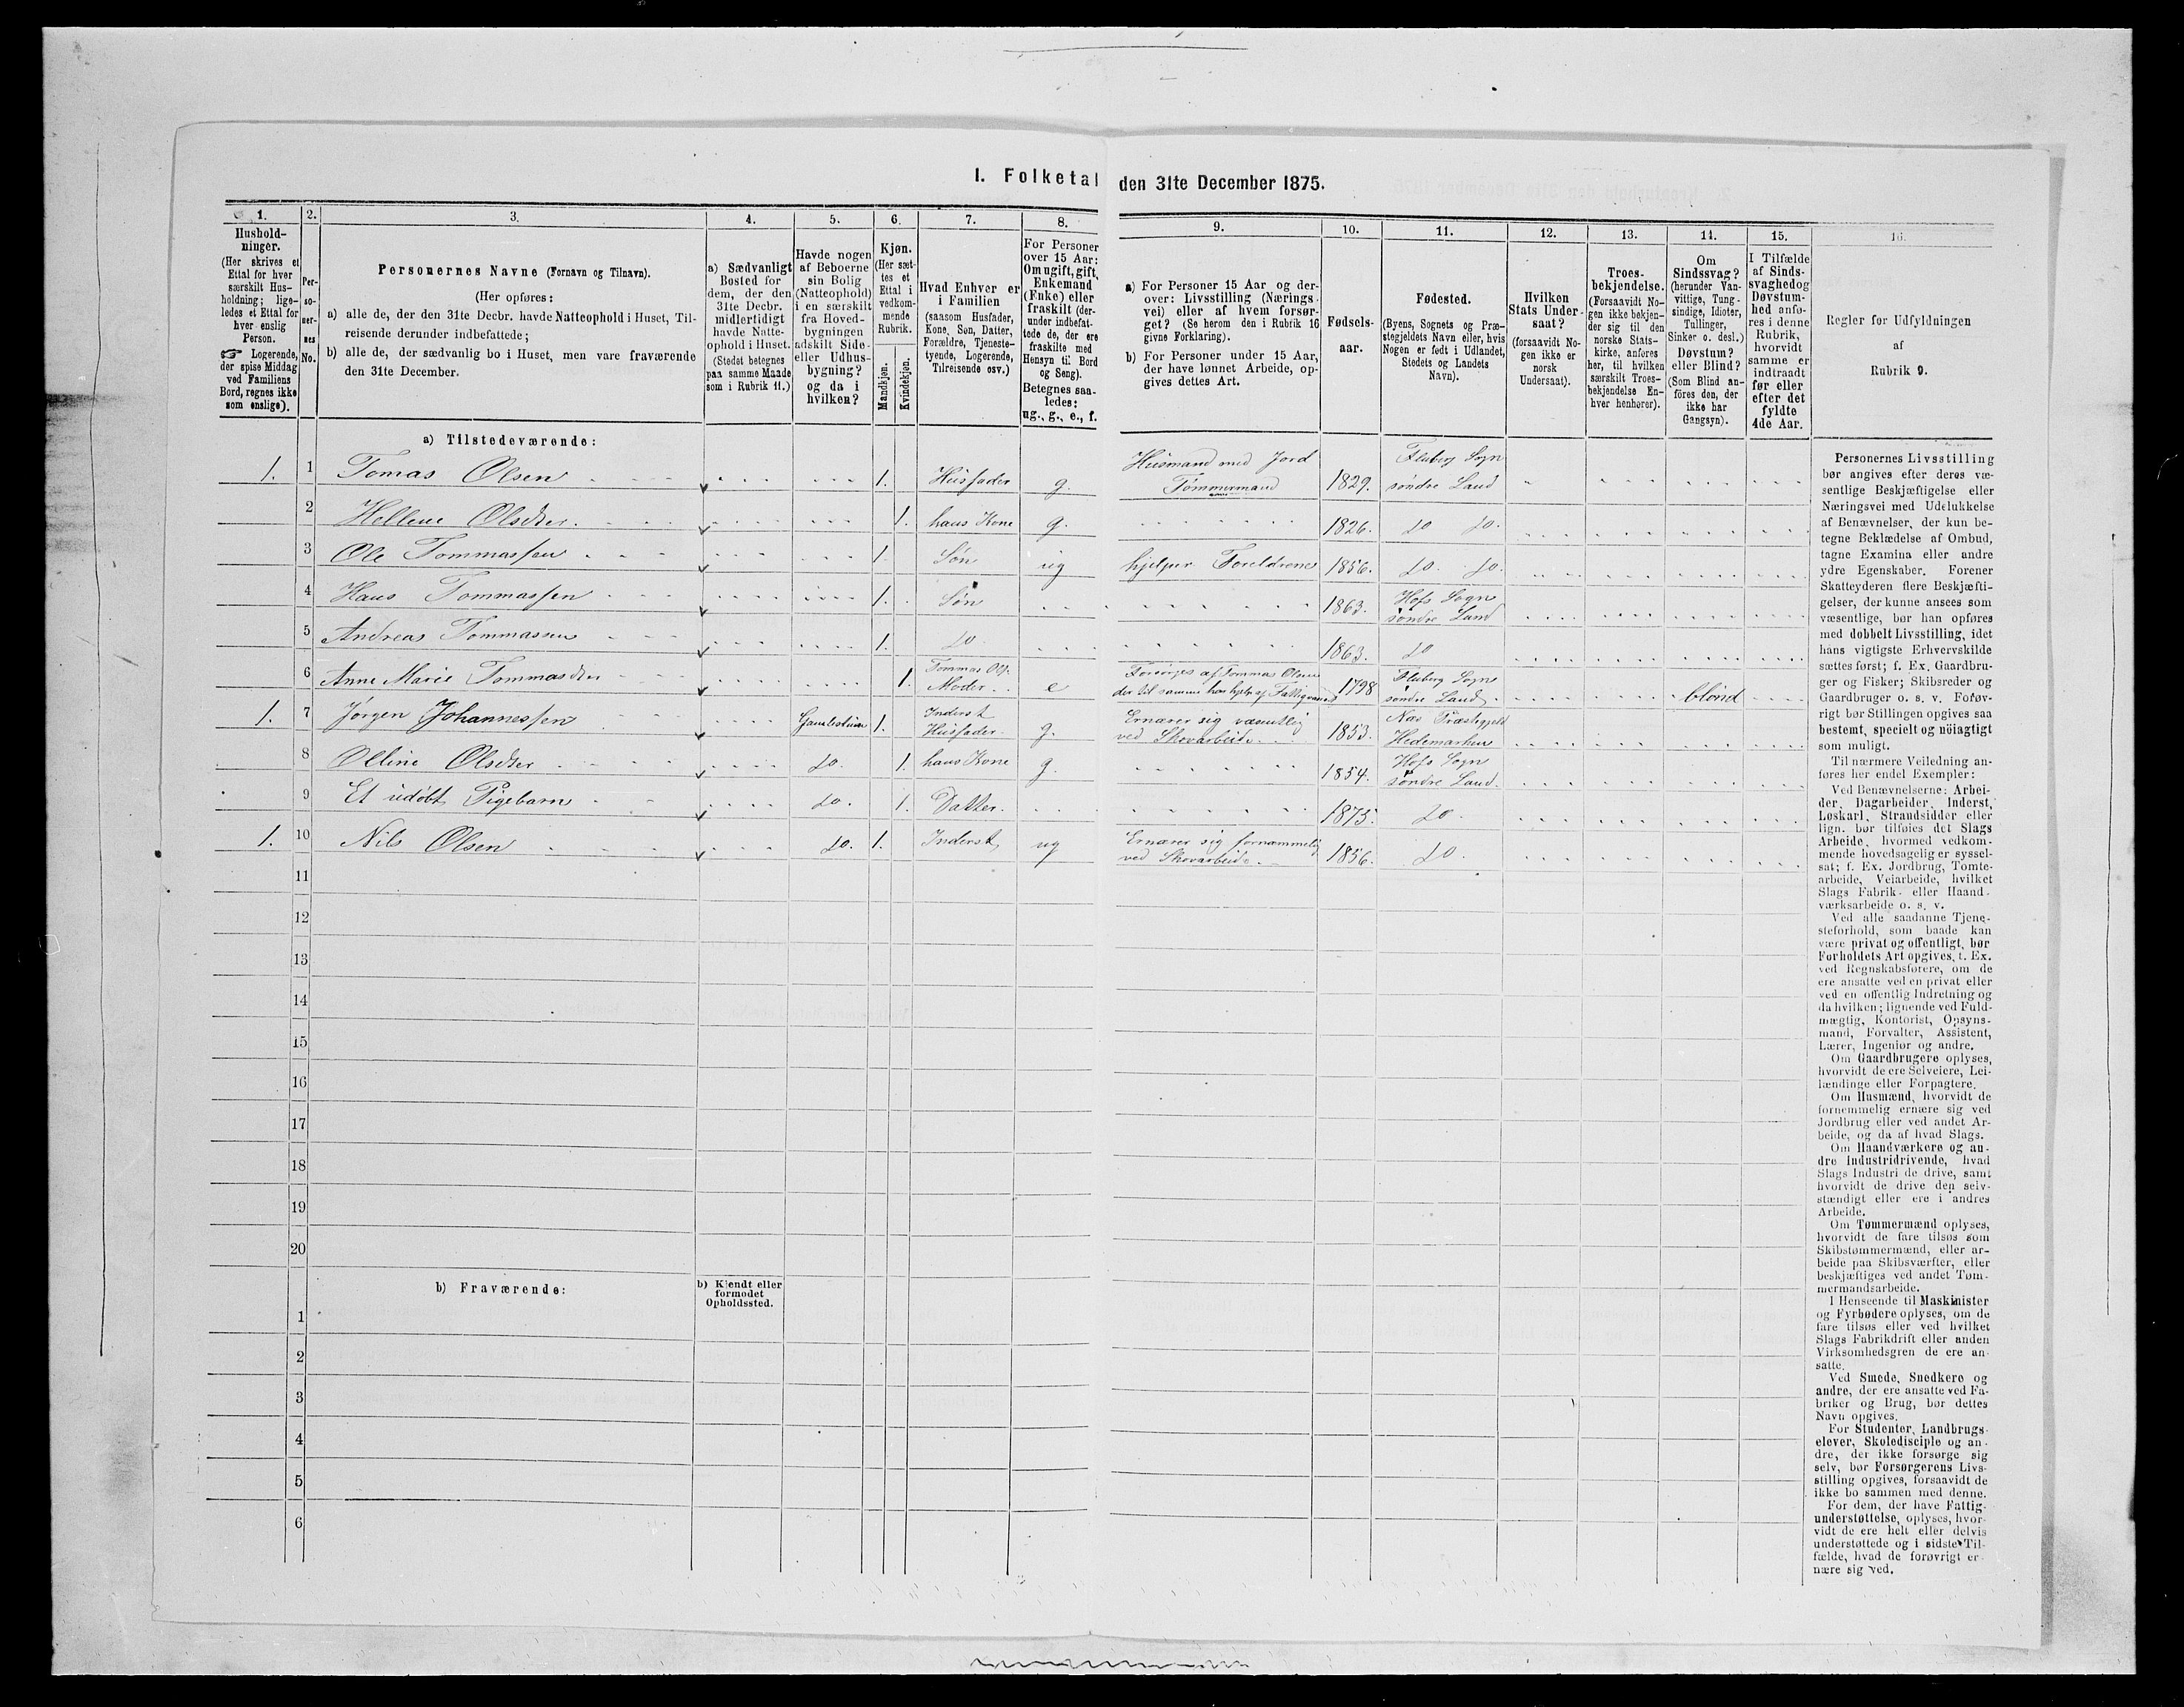 I. Folketal den 31te December 1875.
1.
2.
3.
4.
5.
6.
7.
8.
9.
10.
11.
12.
13.
14.
15.
16.
Hushold-
ninger.
(Her skrives et
Ettal for hver
særskilt Hus-
holdning; lige-
ledes et Ettal for
hver enslig
Person.
☞ Logerende,
der spise Middag
ved Familiens
Bord, regnes ikke
som enslige).
Per-
so-
ner-
nes
No.
Personernes Navne (Fornavn og Tilnavn).
(Her opføres:
a) alle de, der den 31te Decbr. havde Natteophold i Huset, Til-
reisende derunder indbefattede;
b) alle de, der sædvanlig bo i Huset, men vare fraværende
den 31te December.
a) Sædvanligt
Bosted for
dem, der den
31te Decbr.
midlertidigt
havde Natte-
ophold i Huset.
(Stedet betegnes
paa samme Maade
som i Rubrik 11.)
Havde nogen
af Beboerne
sin Bolig
(Natteophold)
i en særskilt
fra Hoved-
bygningen
adskilt Side-
eller Udhus-
bygning?
og da i
hvilken?
Kjøn.
(Her sæt-
tes et
Ettal i
vedkom-
mende
Rubrik.
Mandkjøn.
Kvindekjøn.
Hvad Enhver er
i Familien
(saasom Husfader,
Kone, Søn, Datter,
Forældre, Tjeneste-
tyende, Logerende,
Tilreisende osv.)
For Personer
over 15 Aar:
Om ugift, gift,
Enkemand
(Enke) eller
fraskilt (der-
under indbefat-
tede de, der ere
fraskilte med
Hensyn til Bord
og Seng).
Betegnes saa-
ledes:
ug., g., e., f.
a) For Personer 15 Aar og der-
over: Livsstilling (Nærings-
vei) eller af hvem forsør-
get? (Se herom den i Rubrik 16
givne Forklaring).
b) For Personer under 15 Aar,
der have lønnet Arbeide, op-
gives dettes Art.
Fødsels-
aar.
Fødested.
(Byens, Sognets og Præ-
stegjeldets Navn eller, hvis
Nogen er født i Udlandet,
Stedets og Landets
Navn).
Hvilken
Stats Under-
saat?
(forsaavidt No-
gen ikke er
norsk
Undersaat).
Troes-
bekjendelse.
(Forsaavidt No-
gen ikke bekjen-
der sig til den
norske Stats-
kirke, anføres
her, til hvilken
særskilt Troes-
bekjendelse En-
hver henhører).
Om
Sindssvag?
(herunder Van-
vittige, Tung-
sindige, Idioter,
Tullinger,
Sinker o. desl.)
Døvstum?
eller Blind?
(Som Blind an-
føres den, der
ikke har
Gangsyn).
I Tilfælde
af Sinds-
svaghed og
Døvstum-
hed anfø-
res i denne
Rubrik,
hvorvidt
samme er
indtraadt
før eller
efter det
fyldte
4de Aar.
Regler for Udfyldningen
af
Rubrik 9.
a) Tilstedeværende:
1. 1 Tomas Olsen 1. Husfader g. Husmand med Jord Tømmermand 1829. Fluberg Sogn søndre Land
2 Hellene Olsdter. 1. hans Kone g. 1826. do do.
3 Ole Tommassen 1. Søn ug hjelper Foreldrene 1856. do. do.
4 Hans Tommassen 1. Søn 1863. Hofs Sogn søndre Land
5 Andreas Tommassen 1. do 1863. do
6 Anne Marie Tommasdter 1. Tommas Ols. Moder e Forsørges af Tommas Olsen der til samme har hjelp af 1798 Fluberg Sogn søndre Land blind
1. 7 Jørgen Johannessen 1. Inderst Husfader g. Ernærer sig væsentlig ved Skovarbeide 1853. Næs Præstegjeld Hedemarken
8 Olline Olsdter do. 1. hans Kone g. 1854. Hofs Sogn søndre Land.
9 Et udøbt Pigebarn do. 1. Datter. 1875. do.
1. 10 Nils Olsen do. 1. Inderst ug Ernærer sig fornæmmelig ved Skovarbeide. 1856. do.
11
12
13
14
15
16
17
18
19
20
b) Fraværende:
b) Kjendt eller
formodet
Opholdssted.
1
2
3
4
5
6
Personernes Livsstilling
bør angives efter deres væ-
sentlige Beskjæftigelse eller
Næringsvei med Udelukkelse
af Benævnelser, der kun be-
tegne Beklædelse af Ombud,
tagne Examina eller andre
ydre Egenskaber. Forener
Skatteyderen flere Beskjæfti-
gelser, der kunne ansees som
væsentlige, bør han opføres
med dobbelt Livsstilling, idet
hans vigtigste Erhvervskilde
sættes først; f. Ex. Gaardbru-
ger og Fisker; Skibsreder og
Gaardbruger o. s. v. Forøv-
rigt bør Stillingen opgives saa
bestemt, specielt og nöiagtigt
som muligt.
Til nærmere Veiledning an-
føres her endel Exempler:
Ved Benævnelserne: Arbei-
der, Dagarbeider, Inderst,
Løskarl, Strandsidder eller
lign. bør tilføies det Slags
Arbeide, hvormed vedkom-
mende hovedsagelig er syssel-
sat; f. Ex. Jordbrug, Tomte-
arbeide, Veiarbeide, hvilket
Slags Fabrik- eller Haand-
værksarbeide o. s. v.
Ved alle saadanne Tjene-
steforhold, som baade kan
være privat og offentligt, bør
Forholdets Art opgives, f. Ex.
ved Regnskabsførere, om de
ere ansatte ved en privat eller
ved en offentlig Indretning og
da hvilken; lignende ved Fuld-
mægtig, Kontorist, Opsyns-
mand, Forvalter, Assistent,
Lærer, Ingeniør og andre.
Om Gaardbrugere oplyses,
hvorvidt de ere Selveiere, Lei-
lændinge eller Forpagtere.
Om Husmænd, hvorvidt de
fornemmelig ernære sig ved
Jordbrug eller ved andet Ar-
beide, og da af hvad Slags.
Om Haandværkere og an-
dre Industridrivende, hvad
Slags Industri de drive, samt
hvorvidt de drive den selv-
stændigt eller ere i andres
Arbeide.
Om Tømmermænd oplyses,
hvorvidt de fare tilsøs som
Skibstømmermænd, eller ar-
beide paa Skibsværfter, eller
beskjæftiges ved andet Tøm-
mermandsarbeide.
I Henseende til Maskinister
og Fyrbødere oplyses, om de
fare tilsøs eller ved hvilket
Slags Fabrikdrift eller anden
Virksomhedsgren de ere an-
satte.
Ved Smede, Snedkere og
andre, der ere ansatte ved Fa-
briker og Brug, bør dettes
Navn opgives.
For Studenter, Landbrugs-
elever, Skoledisciple og an-
dre, der ikke forsørge sig
selv, bør Forsørgerens Livs-
stilling opgives, forsaavidt de
ikke bo sammen med denne.
For dem, der have Fattig-
understøttelse, oplyses, hvor-
vidt de ere helt eller delvis
understøttede og i sidste Til-
fælde, hvad de forøvrigt er-
nære sig ved.